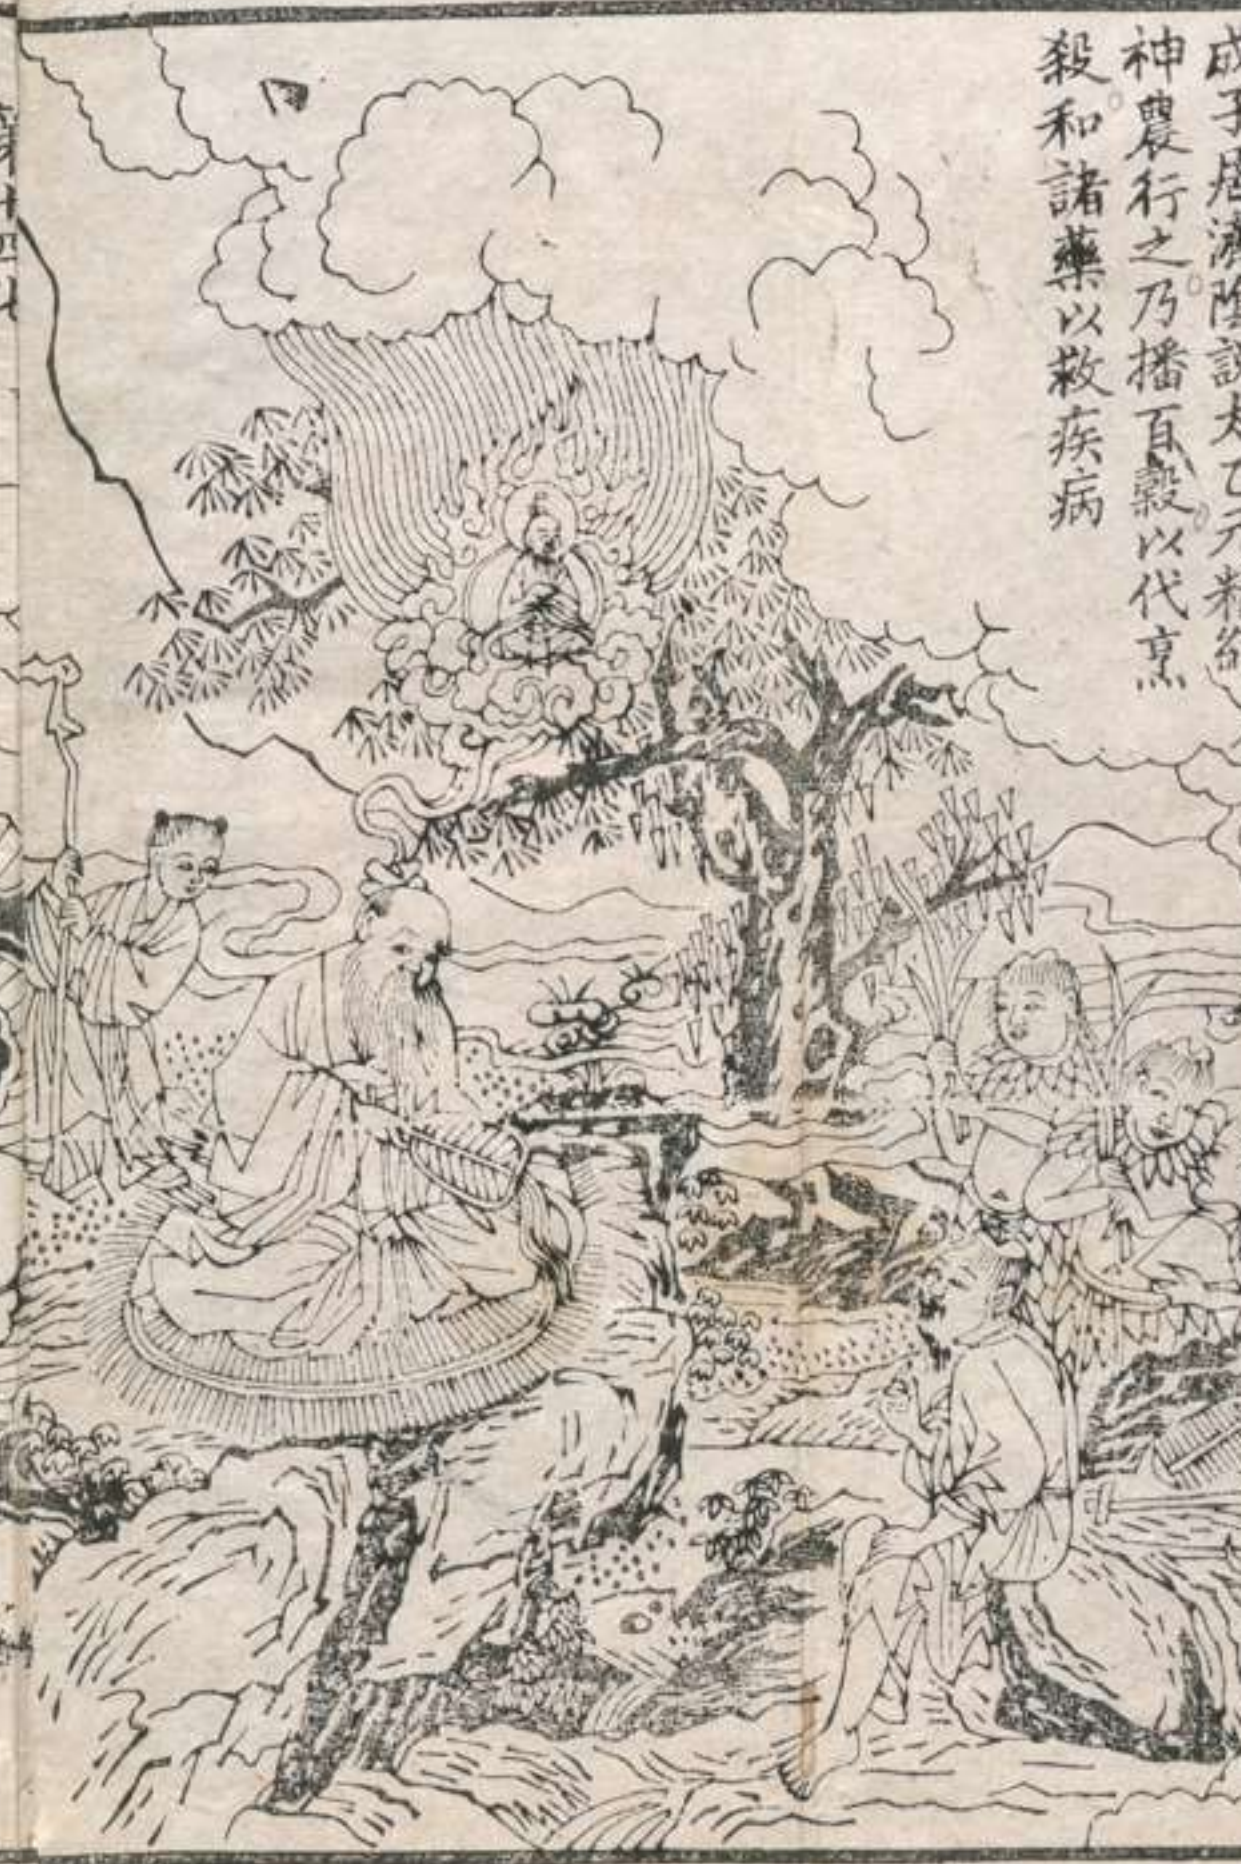 成子居濟陰説太乙元精
神農行之乃播百穀以代烹
殺和諸藥以救疾病
第十四